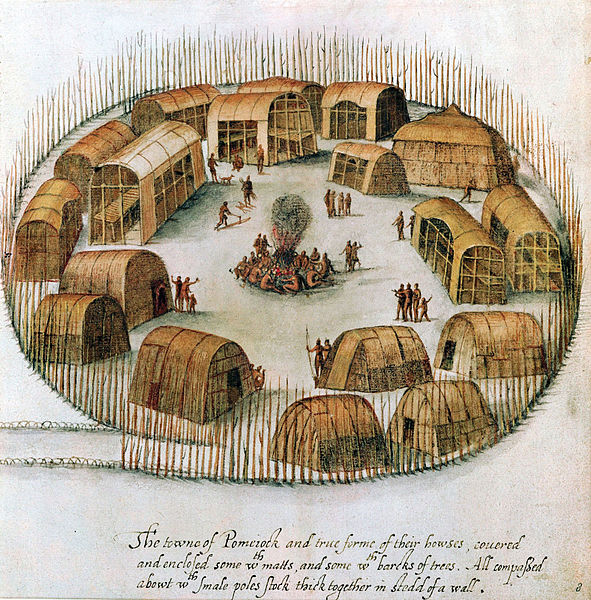 The towne of Pomeiock and true forme of their howses, couered
and enclosed some wth matts, and some wth barcks of trees. All compassed
abowt wth smale poles stock thick together in stedd of a wall.
8